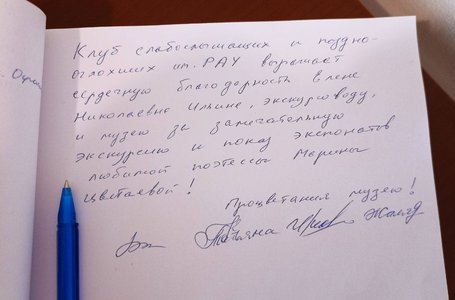 Клуб слабослышащих и поздно-
оглохших им. РАУ выражает
сердечную благодарность Елене
Николаевне Ильиной, экскурсоводу,
и музею за замечательную
экскурсию и показ экспонатов
любимой поэтессы Марины
Цветаевой!
Процветания музею!
Татьяна